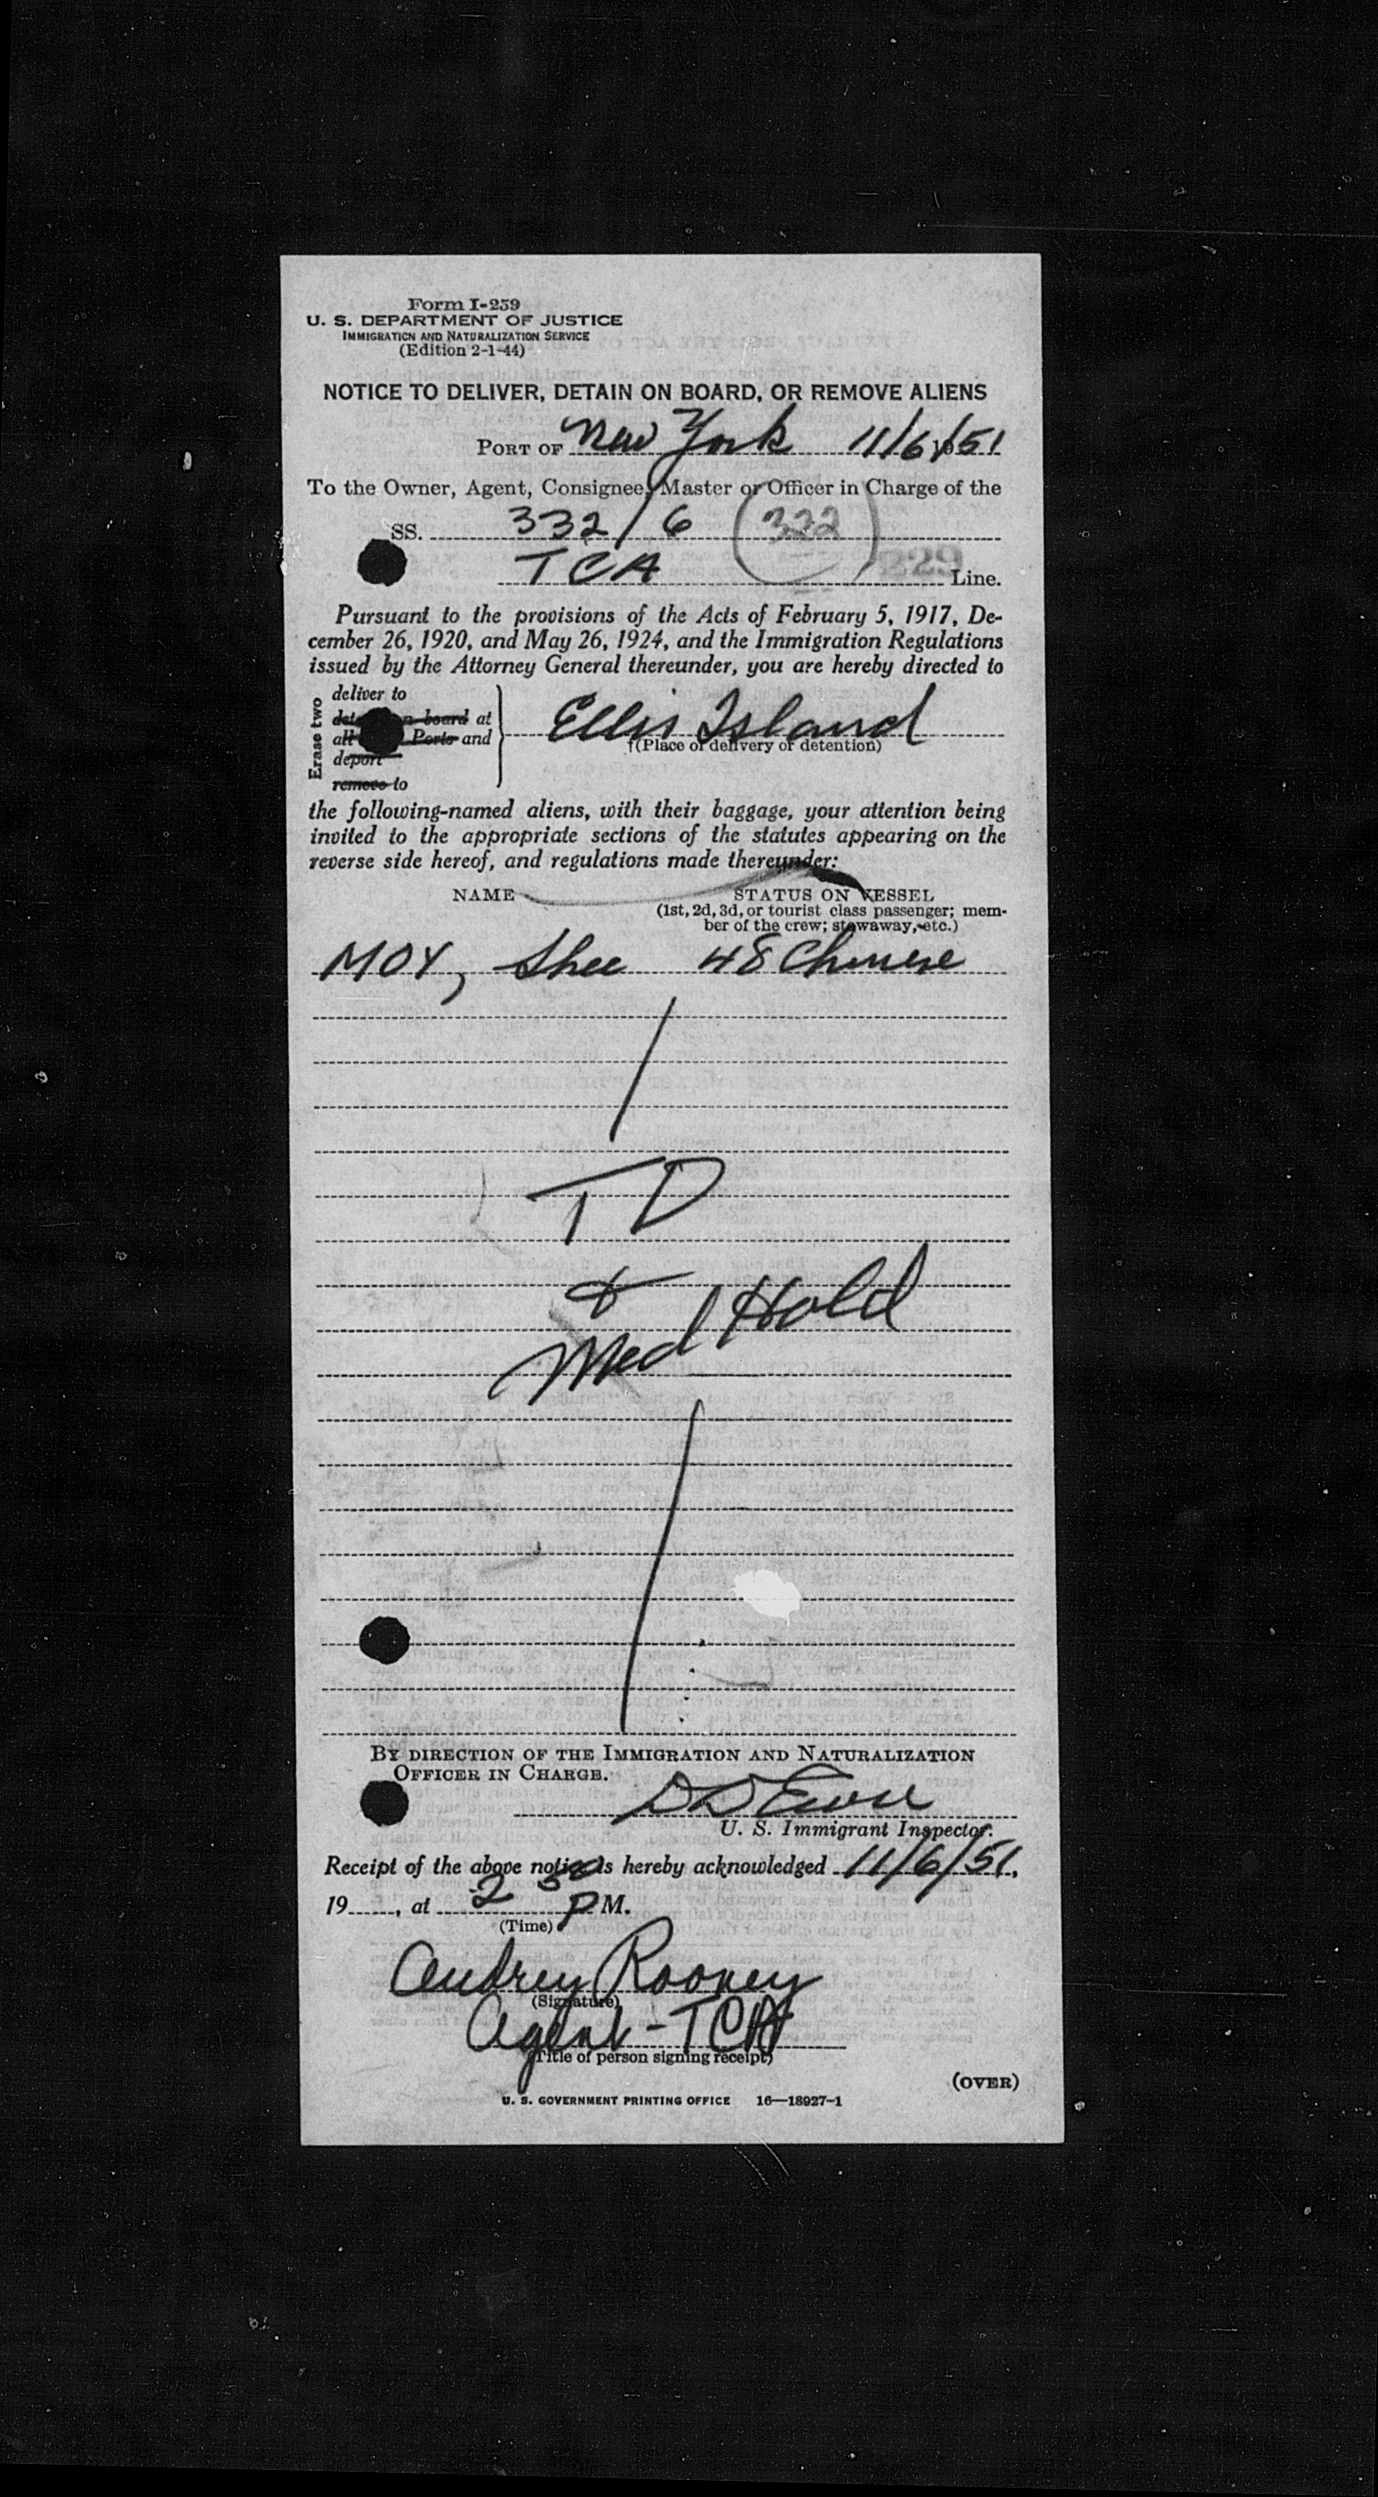 Form I-259
U. S. DEPARTMENT OF JUSTICE
IMMIGRATION AND NATURALIZATION SERVICE
(Edition 2-1-44)
NOTICE TO DELIVER, DETAIN ON BOARD, OR REMOVE ALIENS
PORT OF New York 11/6/51
To the Owner, Agent, Consignee, Master or Officer in Charge of the
SS. 332/6 (322)
TCA 229 Line.
Pursuant to the provisions of the Acts of February 5, 1917, De-
cember 26, 1920, and May 26, 1924, and the Immigration Regulations
issued by the Attorney General thereunder, you are hereby directed to
Erase two
deliver to
board at
all Ports and
deport
remove to
Ellis Island
†(Place of delivery or detention)
the following-named aliens, with their baggage, your attention being
invited to the appropriate sections of the statutes appearing on the
reverse side hereof, and regulations made thereunder:
NAME STATUS ON VESSEL
(1st, 2d, 3d, or tourist class passenger; mem-
ber of the crew; stowaway, etc.)
MOY, Shee 48 Chinese
TD
&
Med Hold
BY DIRECTION OF THE IMMIGRATION AND NATURALIZATION
OFFICER IN CHARGE.
U. S. Immigrant Inspector.
Receipt of the above notice is hereby acknowledged 11/6/51,
19 , at 2 50 P M.
(Time)
Audrey Rooney
(Signature)
Agent - TCA
(Title of person signing receipt)
(OVER)
U. S. GOVERNMENT PRINTING OFFICE 16—18927-1